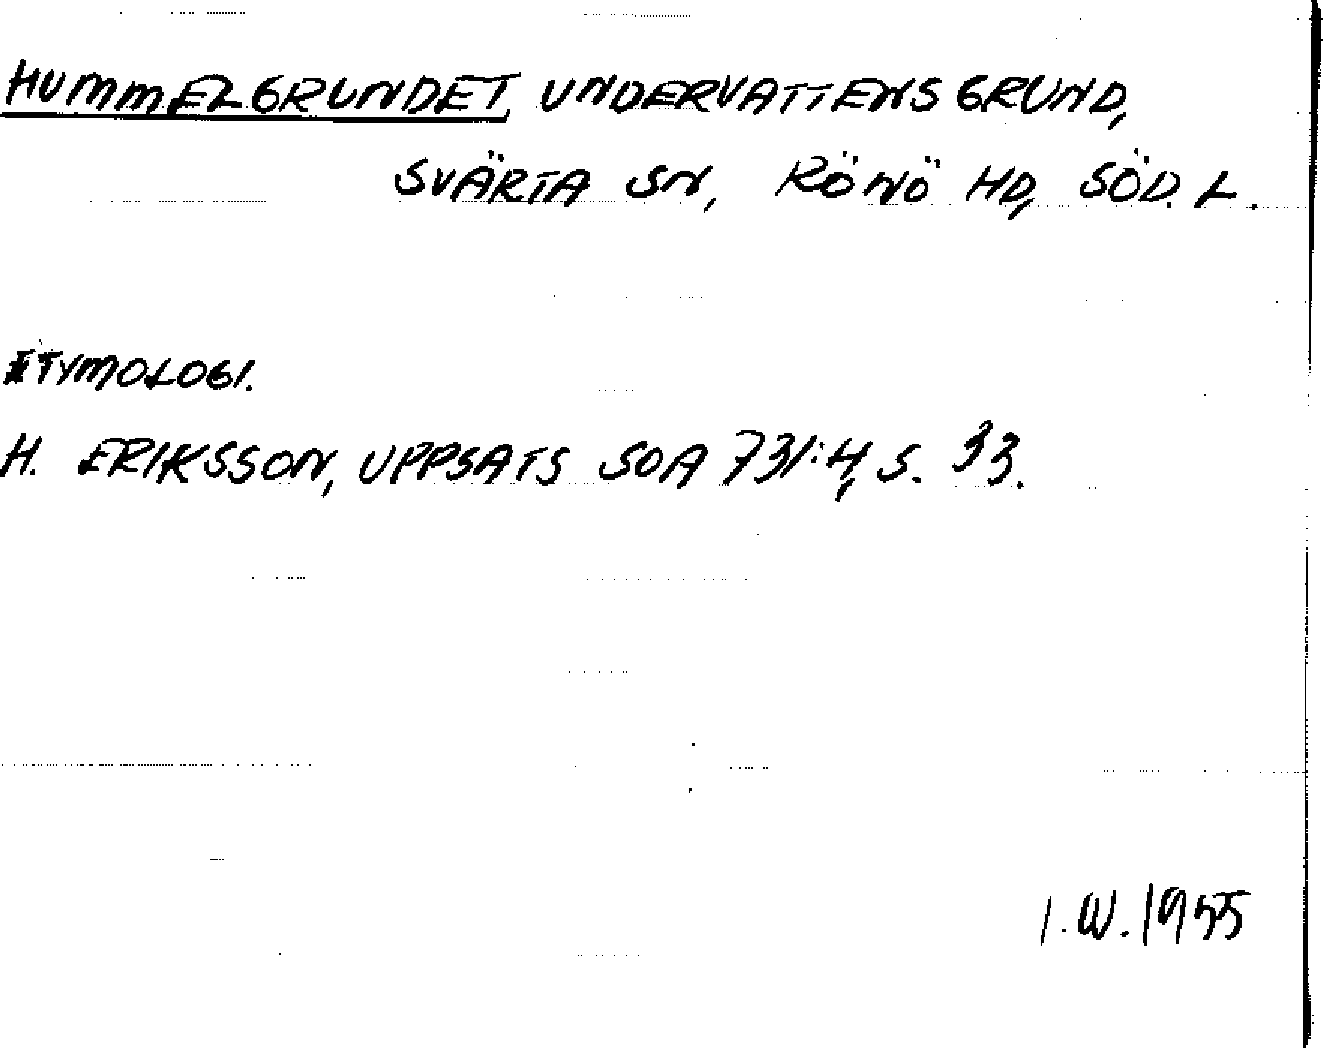 HUMMELGRUNDET, UNDERVATTENSGRUND,
SVÄRTA SN, RÖNÖ HD, SÖD. L.
ETYMOLOGI.
H. ERIKSSON, UPPSATS SOA 731:4, S. 33.
I.W. 1955